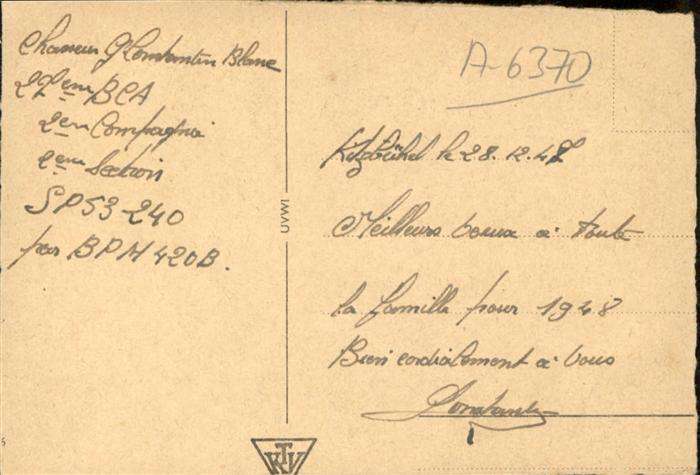 Chasseur Constantin Blanc
27em BCA
2em Compagnie
2eme Section
SP53-240
par BPM 420B.
UVWI
A-6370
Kitzbühel le 28.12.47
Meilleurs voeux à toute
la famille pour 1948
Bien cordialement à vous
Constantin
KTV